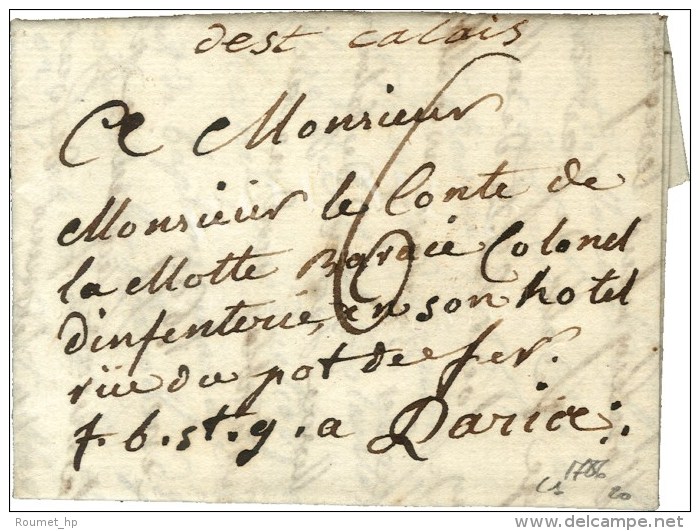 dest calais
A Monsieur
Monsieur le Conte de
la Motte Baracé Colonel
d'infenterie, en son hotel
rüe du pot de fer.
f. b. st. g. a Paris
6
1786
20
Roumet_hp
© delcampe.net